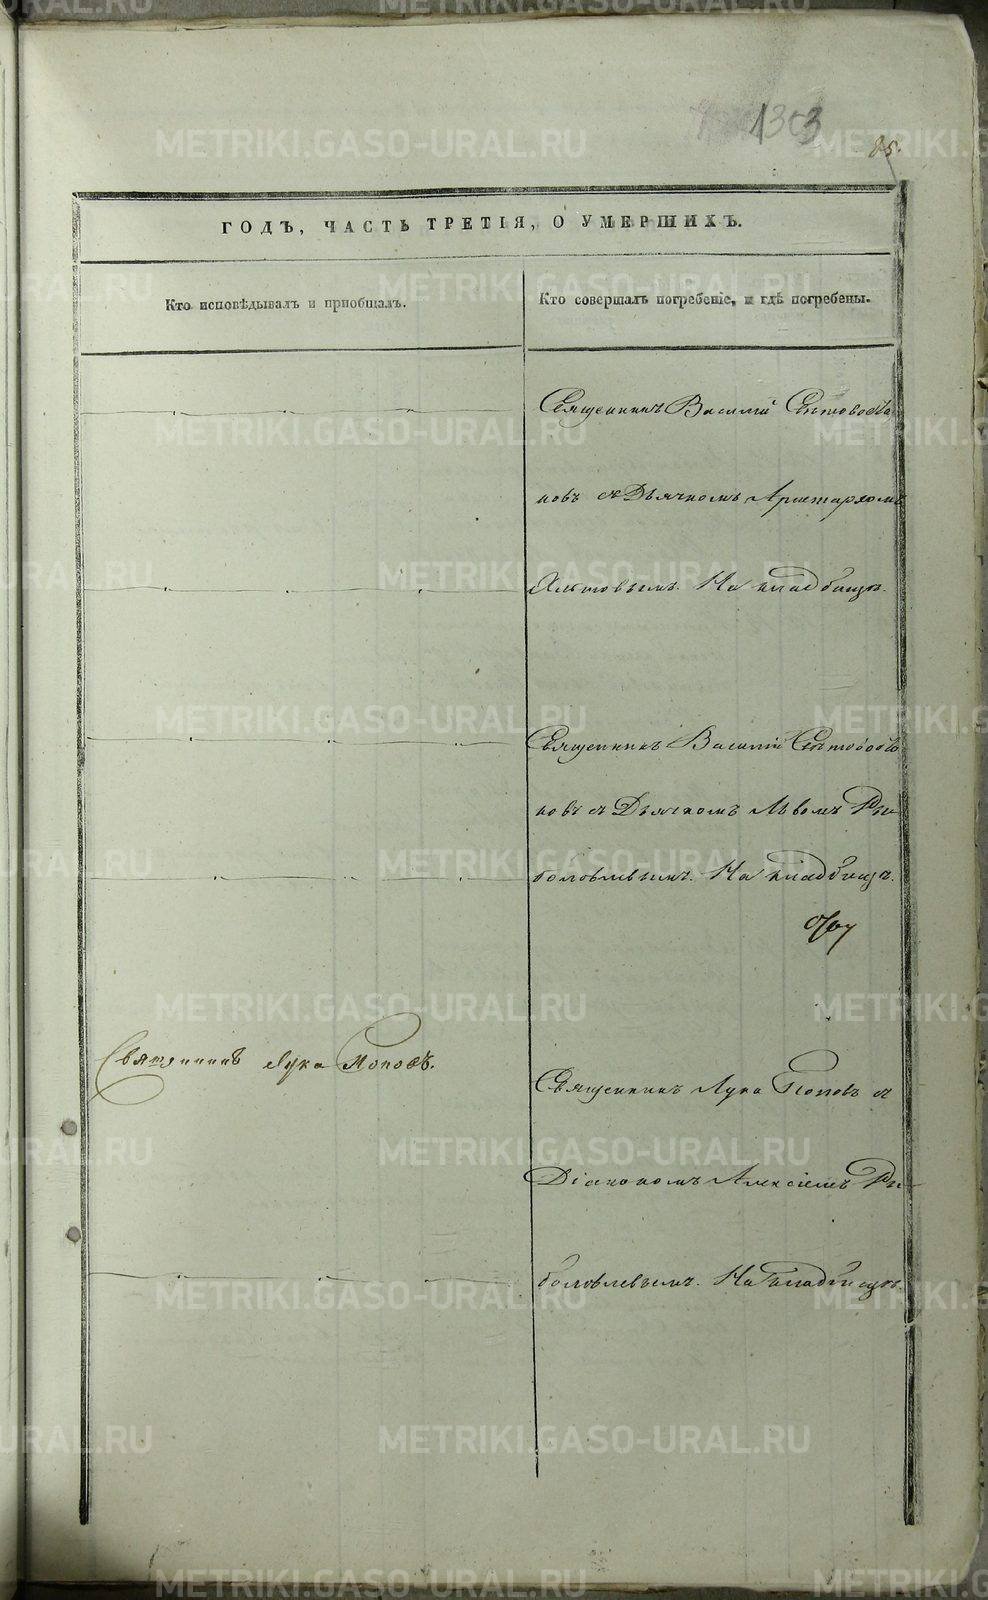 1303
85.
ГОДЪ, ЧАСТЬ ТРЕТІЯ, О УМЕРШИХЪ.
Кто исповѣдывалъ и пріобщалъ.
Кто совершалъ погребеніе, и гдѣ погребены.
Священникъ Василій
новъ съ Дьячкомъ Аристархомъ
На кладбищѣ.
Священникъ Василій
новъ съ Дьячкомъ Львомъ Ры-
боловлевымъ. На кладбищѣ.
Священникъ Лука Поповъ.
Священникъ Лука Поповъ съ
Діакономъ Алексіемъ Ры-
боловлевымъ. На кладбищѣ.
METRIKI.GASO-URAL.RU